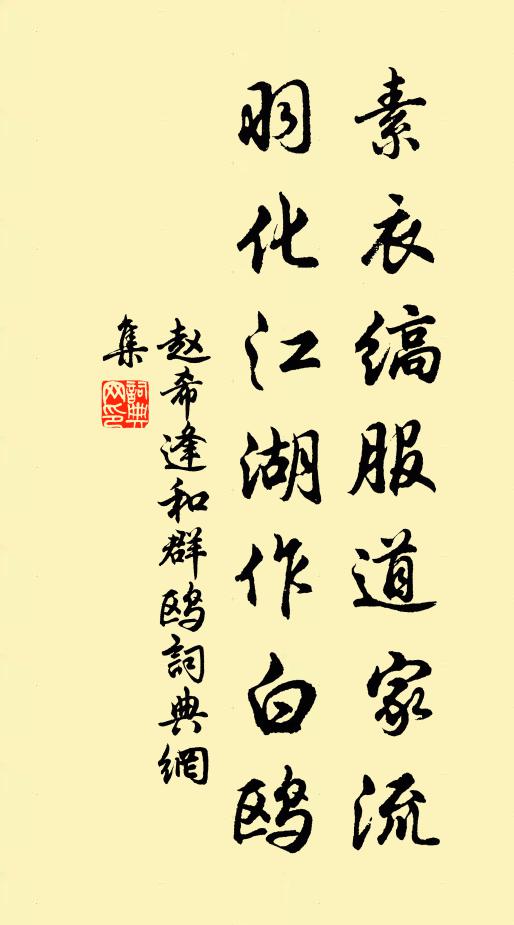 素衣缟服道家流
羽化江湖作白鸥
赵希逢和群鸥詞典網
集
詞典网印